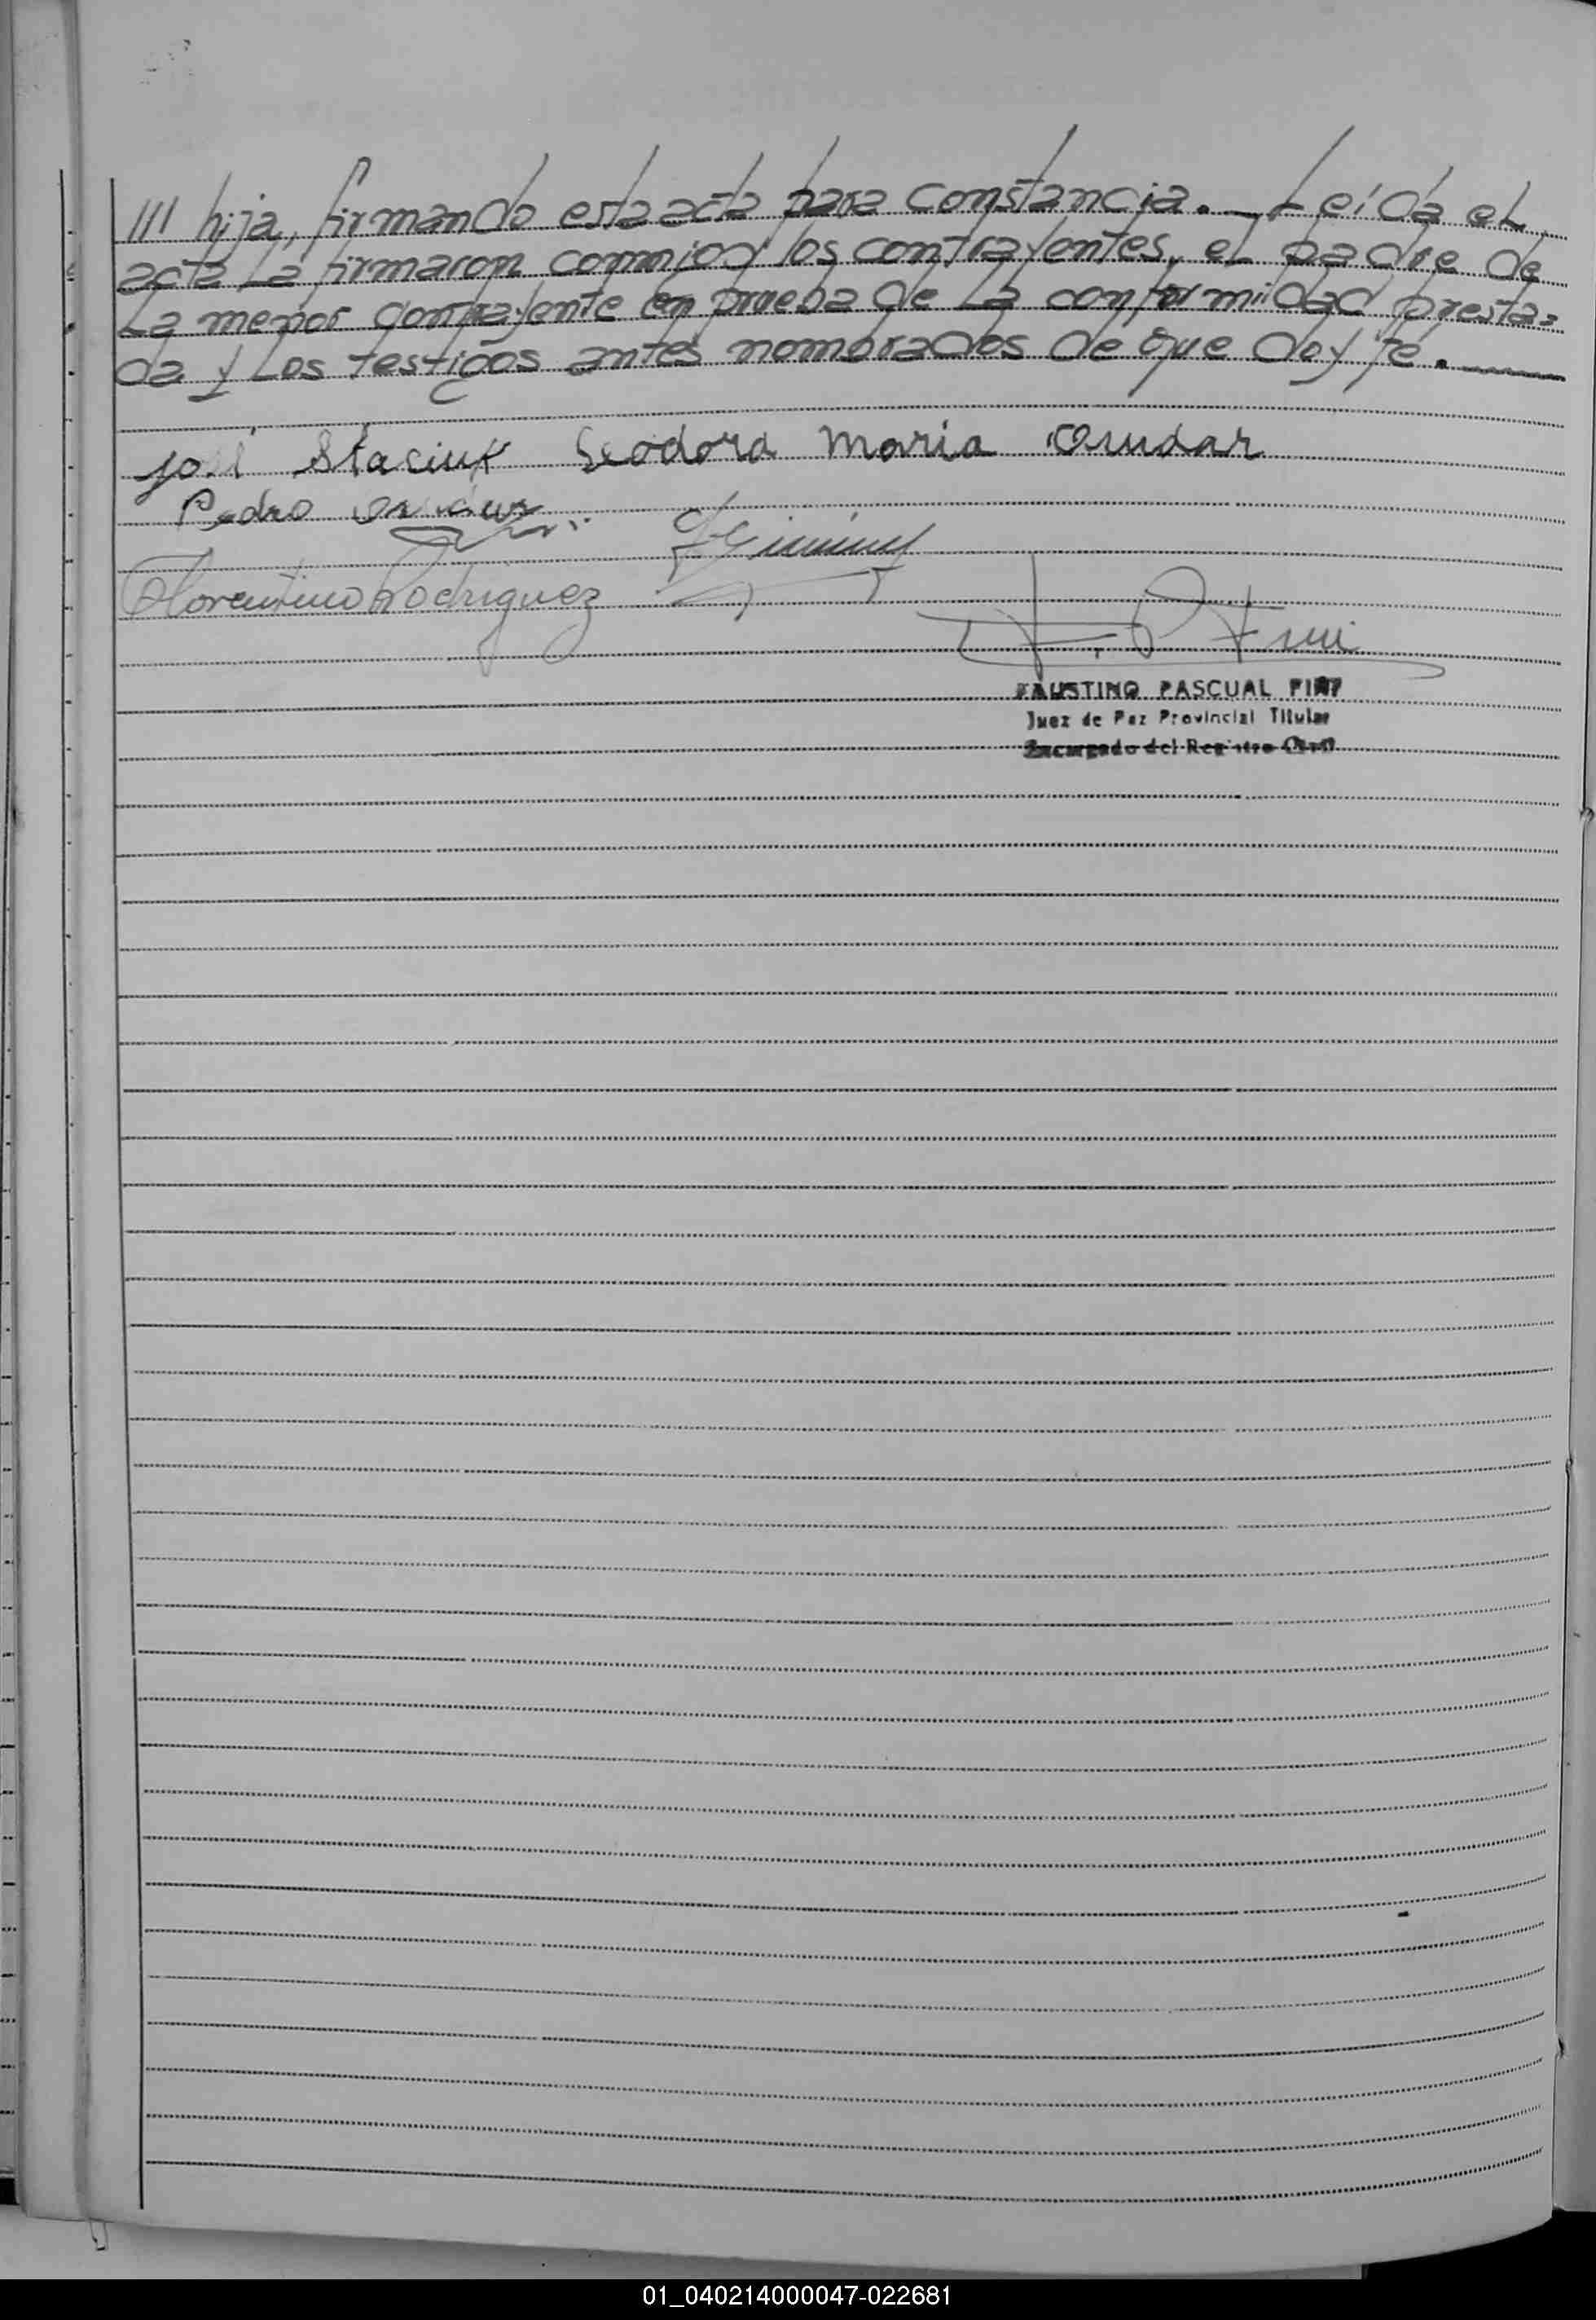 /// hija, firmando esta acta para constancia.- Leída el
acta la firmaron conmigo los contrayentes, el padre de
la menor contrayente en prueba de la conformidad presta=
da y los testigos antes nombrados de que doy fé.
José Stasiuk Teodora Maria
Pedro
Florentino Rodriguez
FAUSTINO PASCUAL
Juez de Paz Provincial Titular
Encargado del Registro Civil
01_040214000047-022681